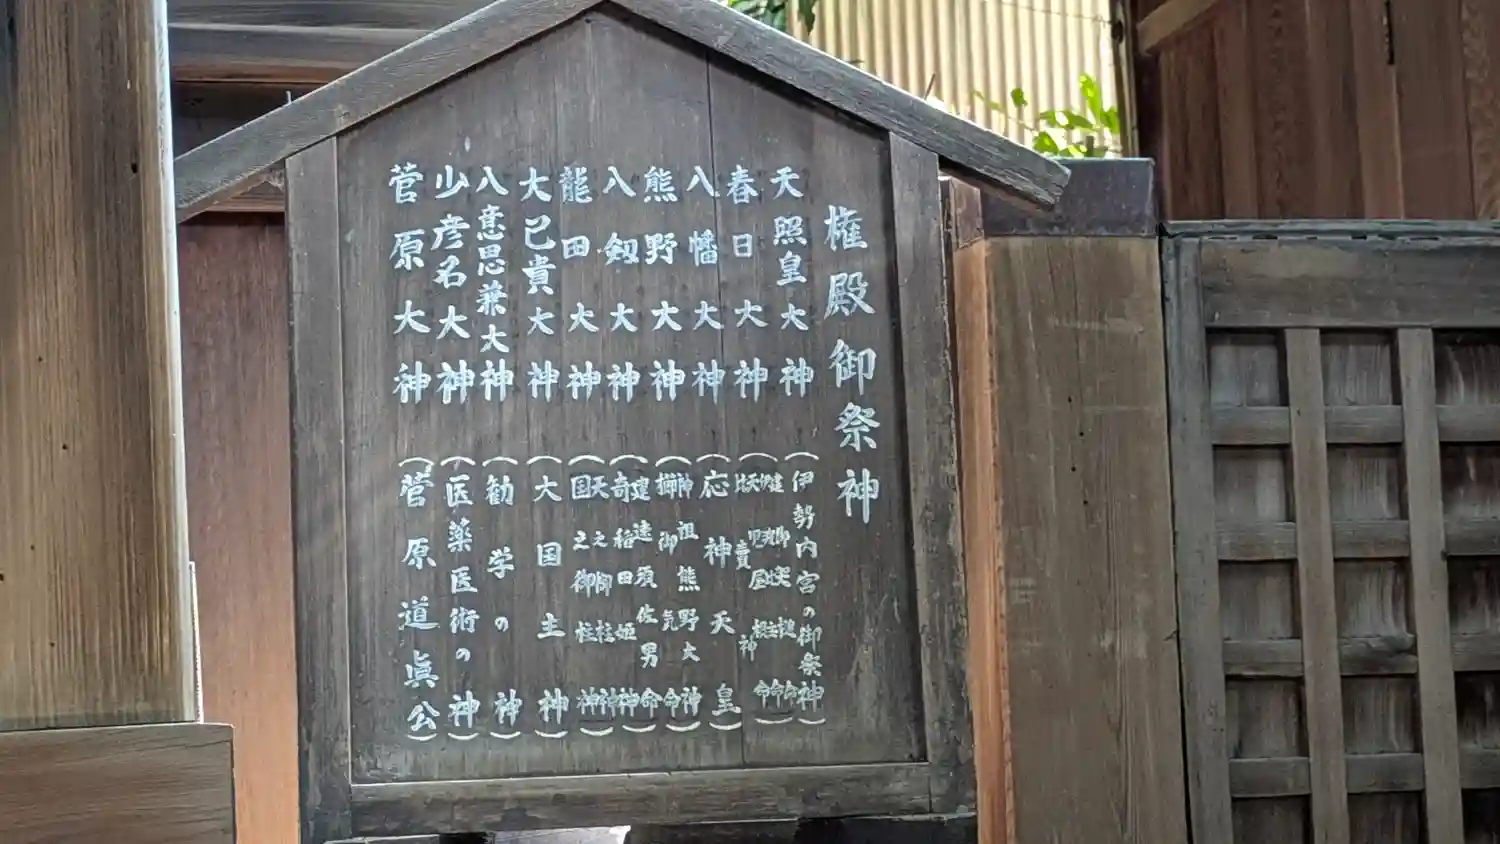 権殿御祭神
天照皇大神（伊勢内宮の御祭神）
春日大神
八幡大神（応神天皇）
熊野大神（神祖熊野大神 櫛御気 命）
八剱大神（建速須佐男命 奇稲田姫神）
龍田大神（天之御柱神 国之御柱神）
大己貴大神（大国主神）
八意思兼大神（勧学の神）
少彦名大神（医薬医術の神）
菅原大神（菅原道真公）